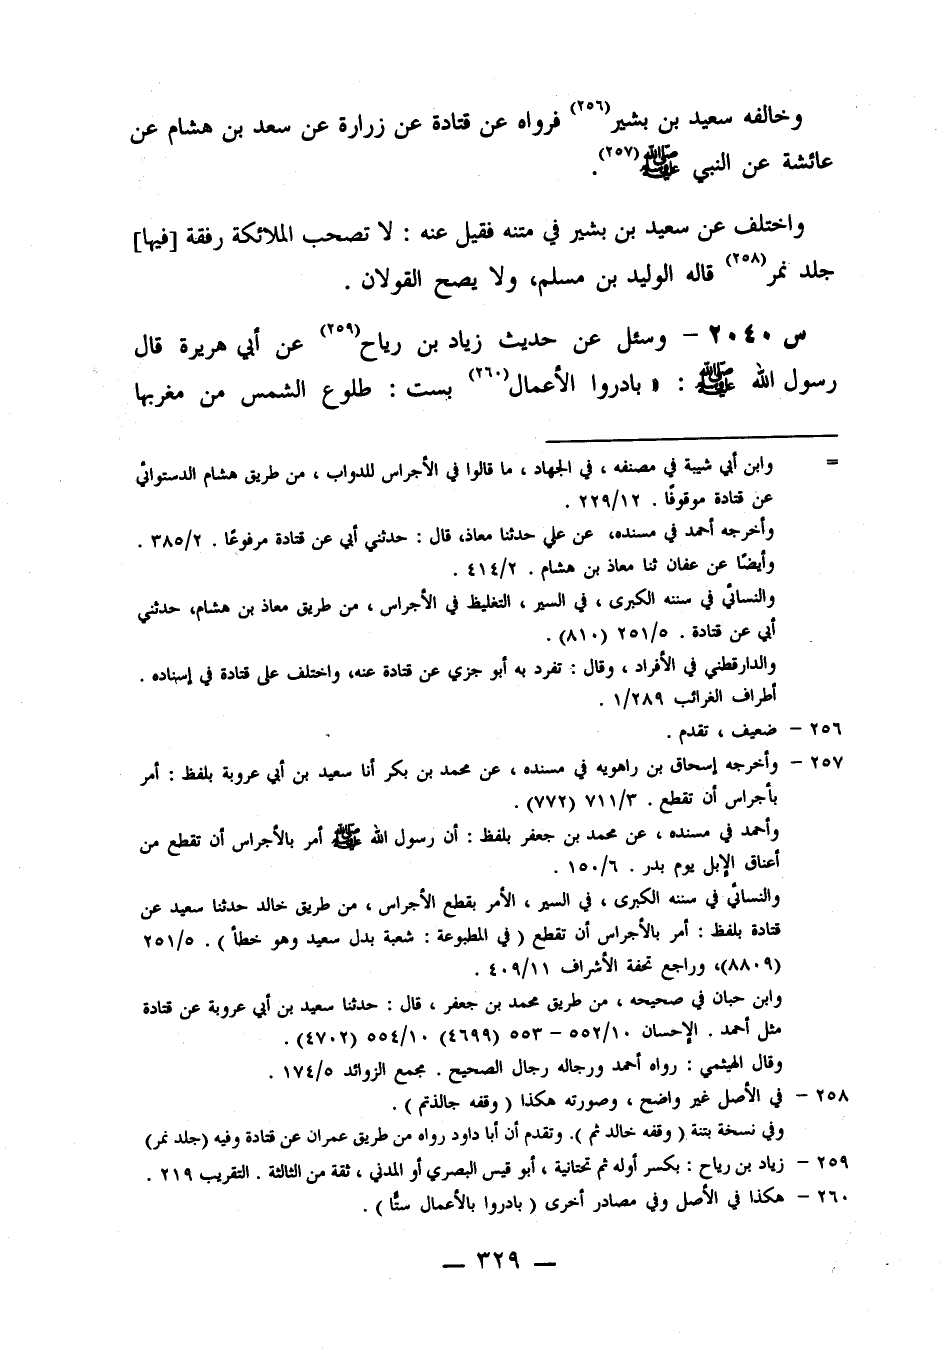 وخالفه سعيد بن بشير(٢٥٦) فرواه عن قتادة عن زرارة عن سعد بن هشام عن
عائشة عن النبي ﷺ(٢٥٧) .
واختلف عن سعيد بن بشير في متنه فقيل عنه : لا تصحب الملائكة رفقة [فيها]
جلد نمر(٢٥٨) قاله الوليد بن مسلم، ولا يصح القولان .
س ٢٠٤٠ – وسئل عن حديث زياد بن رياح(٢٥٩) عن أبي هريرة قال
رسول الله ﷺ : « بادروا الأعمال(٢٦٠) بست : طلوع الشمس من مغربها
= وابن أبي شيبة في مصنفه ، في الجهاد ، ما قالوا في الأجراس للدواب ، من طريق هشام الدستوائي
عن قتادة موقوفًا . ٢٢٩/١٢ .
وأخرجه أحمد في مسنده، عن علي حدثنا معاذ، قال : حدثني أبي عن قتادة مرفوعًا . ٣٨٥/٢ .
وأيضًا عن عفان ثنا معاذ بن هشام . ٤١٤/٢ .
والنسائي في سننه الكبرى ، في السير ، التغليظ في الأجراس ، من طريق معاذ بن هشام، حدثني
أبي عن قتادة . ٢٥١/٥ (٨١٠) .
والدارقطني في الأفراد ، وقال : تفرد به أبو جزي عن قتادة عنه، واختلف على قتادة في إسناده .
أطراف الغرائب ١/٢٨٩ .
٢٥٦ – ضعيف ، تقدم .
٢٥٧ – وأخرجه إسحاق بن راهويه في مسنده ، عن محمد بن بكر أنا سعيد بن أبي عروبة بلفظ : أمر
بأجراس أن تقطع . ٧١١/٣ (٧٧٢) .
وأحمد في مسنده ، عن محمد بن جعفر بلفظ : أن رسول الله ﷺ أمر بالأجراس أن تقطع من
أعناق الإبل يوم بدر . ١٥٠/٦ .
والنسائي في سننه الكبرى ، في السير ، الأمر بقطع الأجراس ، من طريق خالد حدثنا سعيد عن
قتادة بلفظ : أمر بالأجراس أن تقطع ( في المطبوعة : شعبة بدل سعيد وهو خطأ ) . ٢٥١/٥
(٨٨٠٩)، وراجع تحفة الأشراف ٤٠٩/١١ .
وابن حبان في صحيحه ، من طريق محمد بن جعفر ، قال : حدثنا سعيد بن أبي عروبة عن قتادة
مثل أحمد . الإحسان ٥٥٢/١٠ – ٥٥٣ (٤٦٩٩) ٥٥٤/١٠ (٤٧٠٢) .
وقال الهيثمي : رواه أحمد ورجاله رجال الصحيح . مجمع الزوائد ١٧٤/٥ .
٢٥٨ – في الأصل غير واضح ، وصورته هكذا ( وقفه جالذتم ) .
وفي نسخة بتنة ( وقفه خالد ثم ). وتقدم أن أبا داود رواه من طريق عمران عن قتادة وفيه (جلد نمر)
٢٥٩ – زياد بن رياح : بكسر أوله ثم تحتانية ، أبو قيس البصري أو المدني ، ثقة من الثالثة . التقريب ٢١٩ .
٢٦٠ – هكذا في الأصل وفي مصادر أخرى ( بادروا بالأعمال ستًّا ) .
— ٣٢٩ —